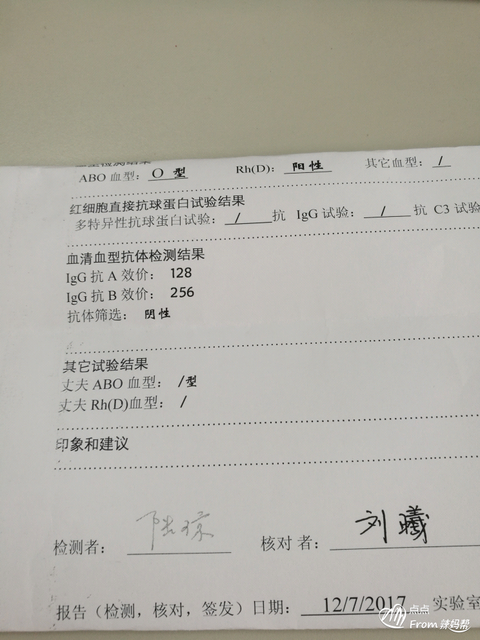 ABO 血型: O 型 Rh(D): 阳性 其它血型: /
红细胞直接抗球蛋白试验结果
多特异性抗球蛋白试验: / 抗 IgG 试验: / 抗 C3 试验
血清血型抗体检测结果
IgG 抗 A 效价: 128
IgG 抗 B 效价: 256
抗体筛选: 阴性
其它试验结果
丈夫 ABO 血型: /型
丈夫 Rh(D)血型: /
印象和建议
检测者: 核对者: 刘曦
报告（检测, 核对, 签发）日期: 12/7/2017 实验室
点点
From 辣妈帮